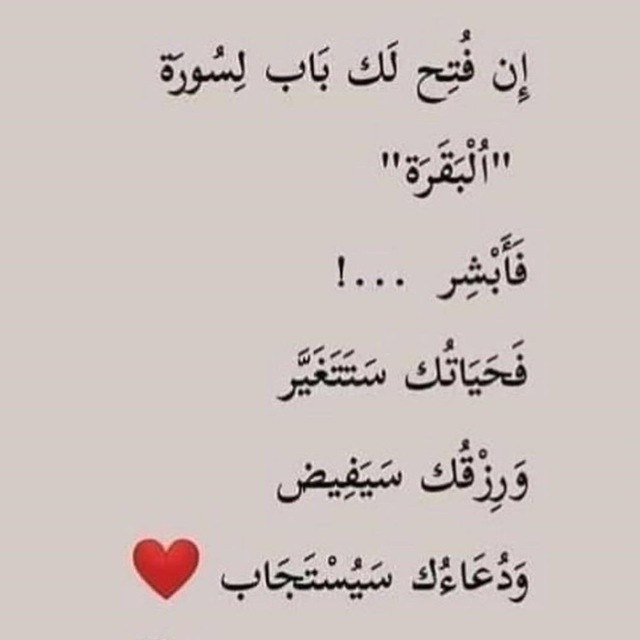 إِن فُتِح لَك بَاب لِسُورَة
"اُلْبَقَرَة"
فَأَبْشِر ...!
فَحَيَاتُك سَتَتَغَيَّر
وَرِزْقُك سَيَفِيض
وَدُعَاءُك سَيُسْتَجَاب ❤️